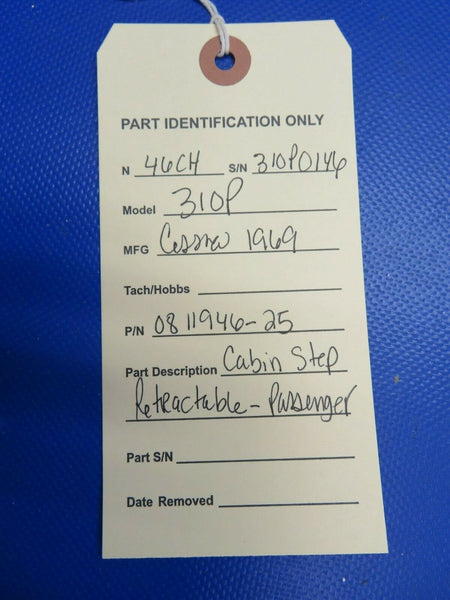 PART IDENTIFICATION ONLY
N 46CH S/N 310P0146
Model 310P
MFG Cessna 1969
Tach/Hobbs
P/N 0811946-25
Part Description Cabin Step
Retractable - Passenger
Part S/N
Date Removed